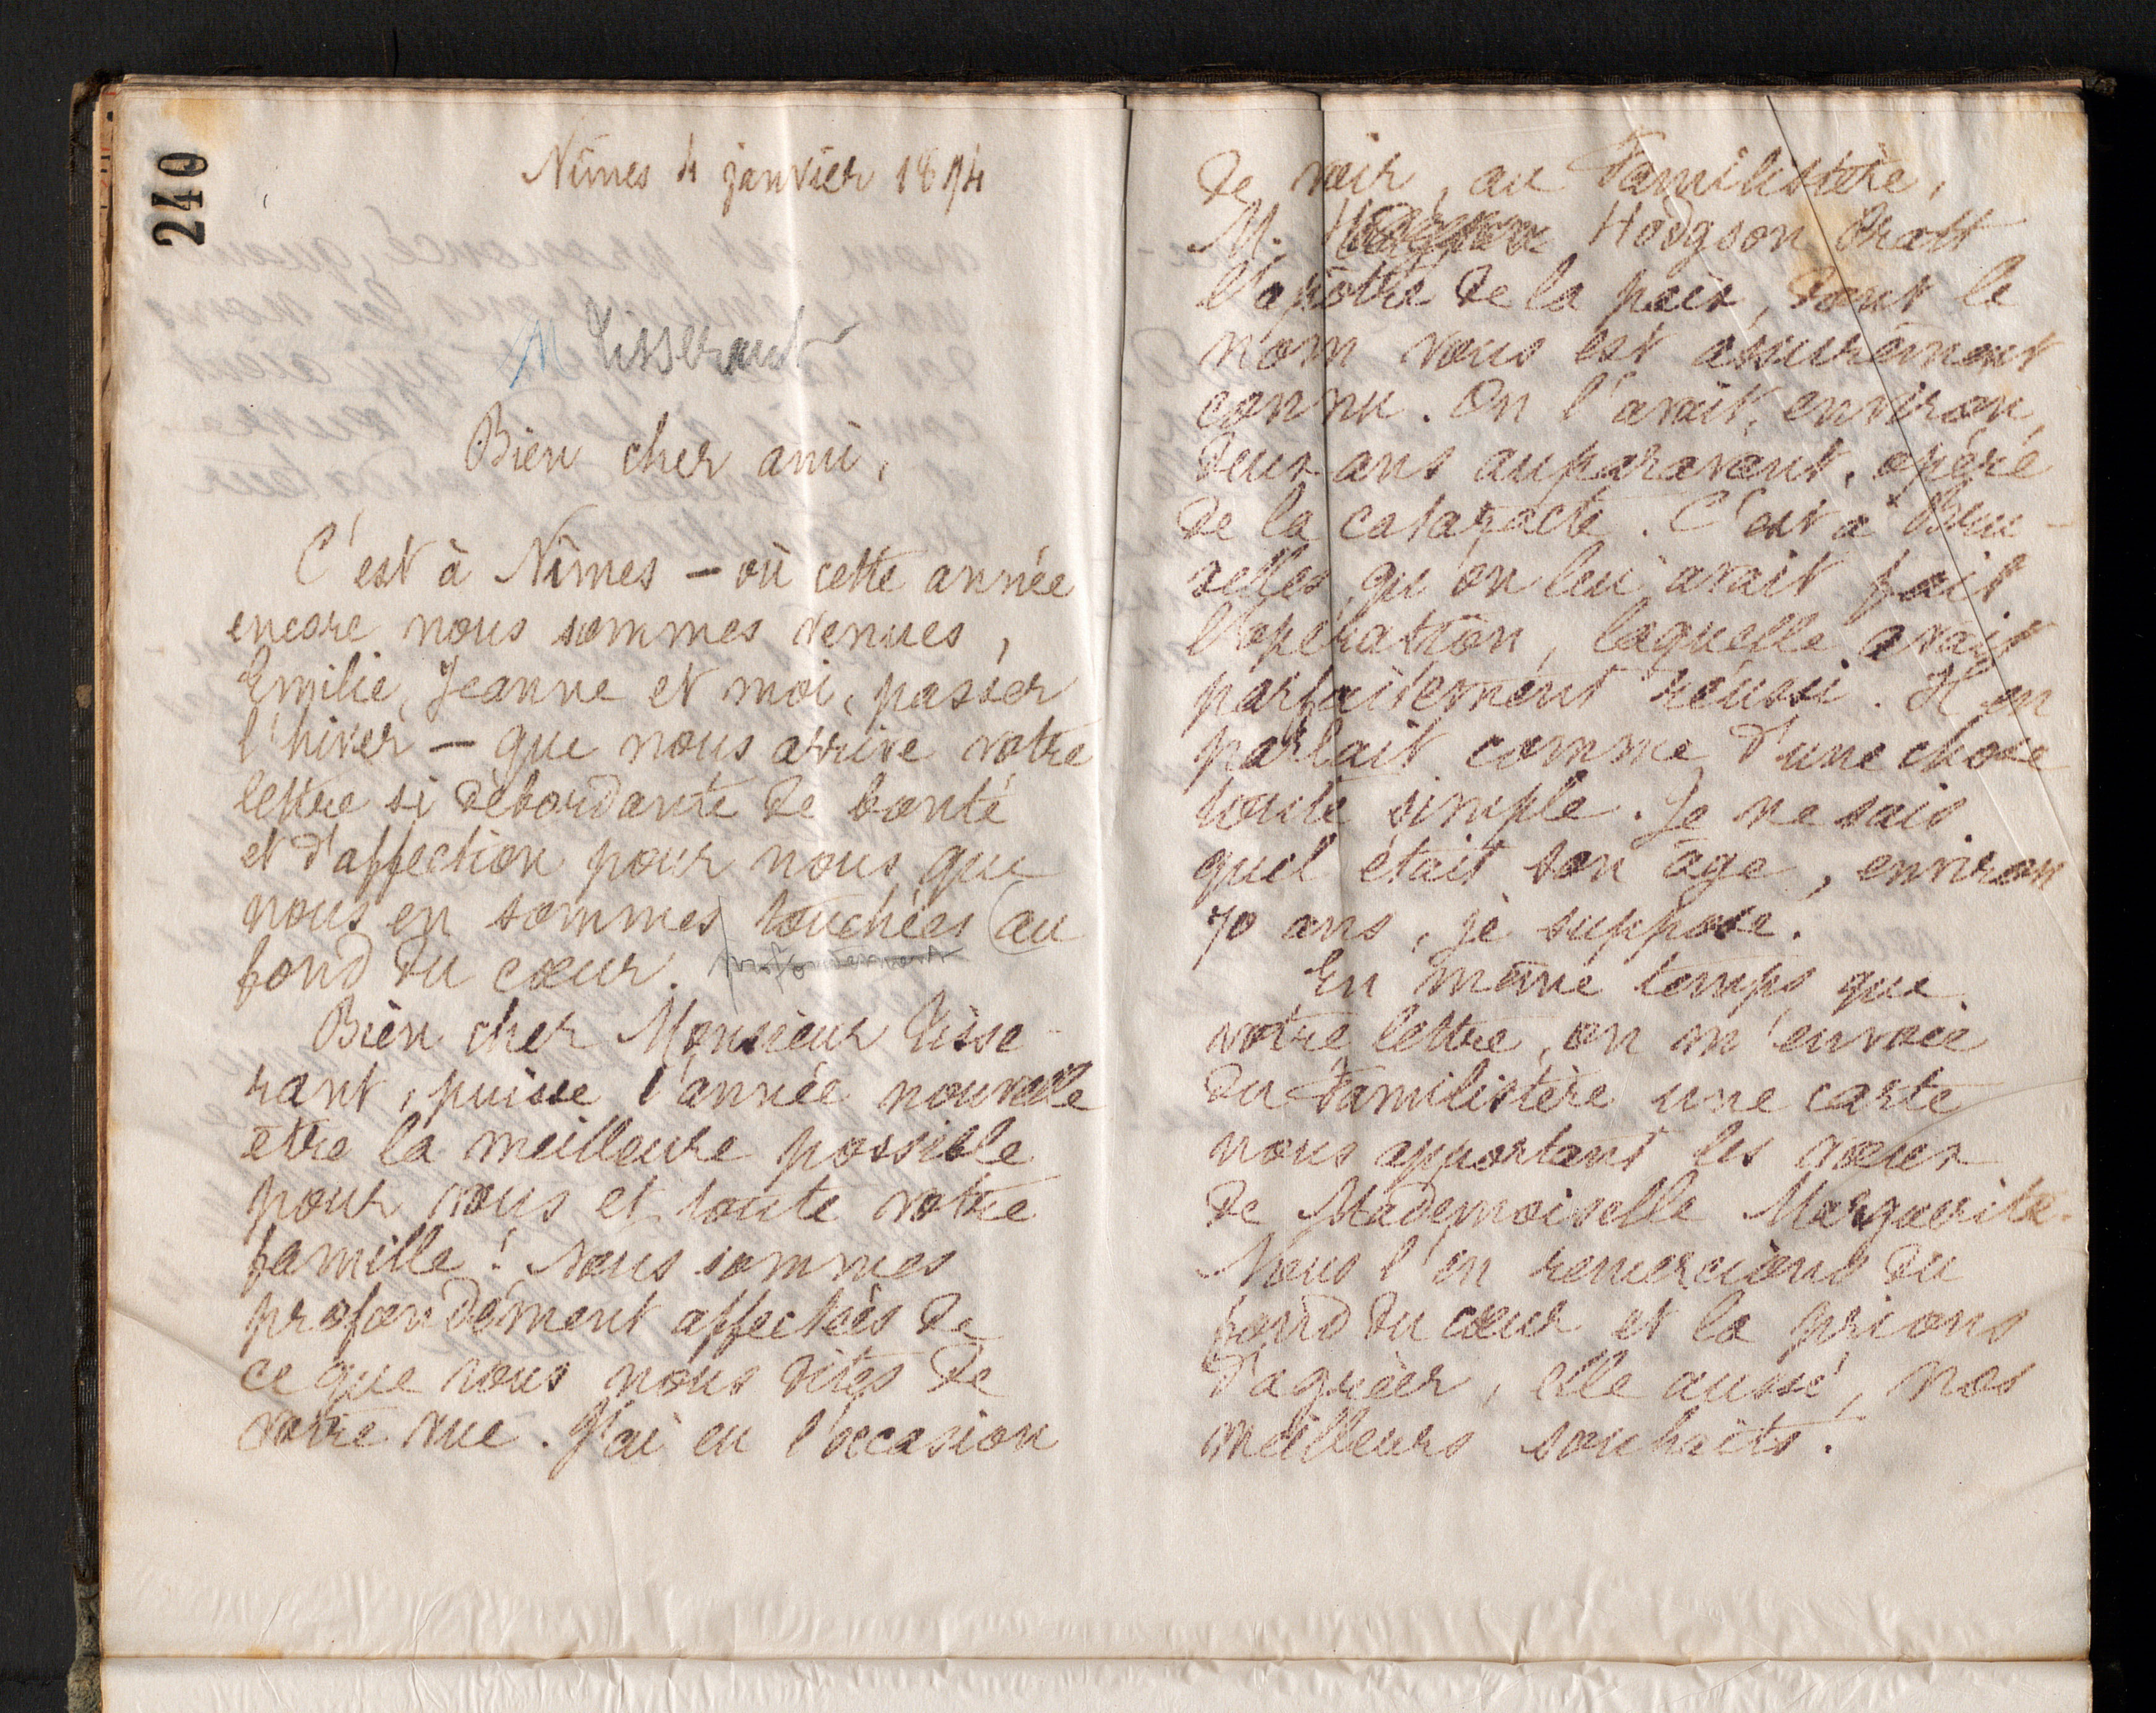 240
Nîmes 4 janvier 1894
M Tisserant
Bien cher ami,
C'est à Nîmes — où cette année
encore nous sommes venues,
Emilie, Jeanne et moi, passer
l'hiver — que nous arrive votre
lettre si débordante de bonté
et d'affection pour nous que
nous en sommes touchées (au
fond du cœur. profondément
Bien cher Monsieur Tisse-
rant, puisse l'année nouvelle
être la meilleure possible
pour vous et toute votre
famille ! Nous sommes
profondément affectées de
ce que vous nous dites de
votre vue. J'ai eu l'occasion
de voir, au Familistère,
M. Hodgson Pratt
l'apôtre de la paix, dont le
nom vous est assurément
connu. On l'avait, environ
deux ans auparavant, opéré
de la cataracte. C'est à Bru-
xelles qu'on lui avait fait
l'opération, laquelle avait
parfaitement réussi. Il en
parlait comme d'une chose
toute simple. Je ne sais
quel était son âge, environ
70 ans, je suppose.
En même temps que
votre lettre, on m'envoie
du Familistère une carte
nous apportant les vœux
de Mademoiselle Marguerite.
Nous l'en remercions du
fond du cœur et la prions
d'agréer, elle aussi, nos
meilleurs souhaits.